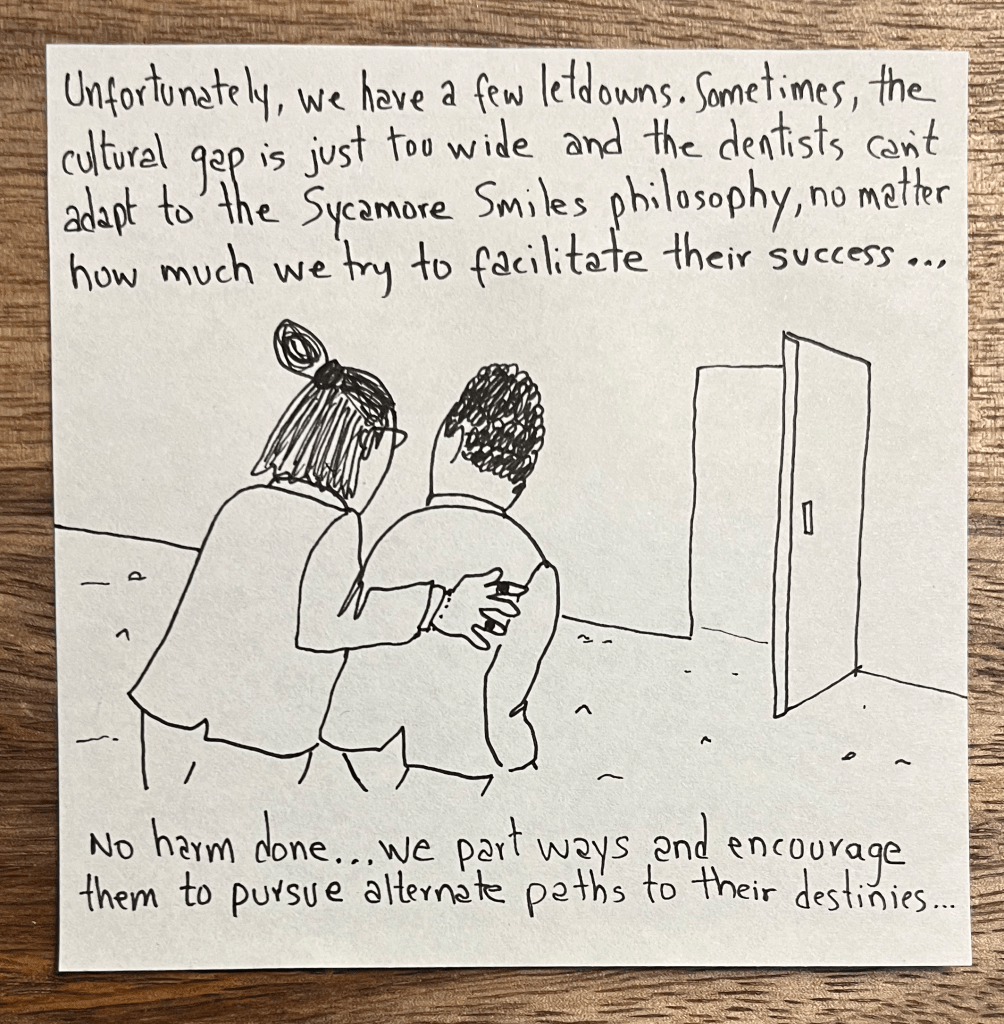 Unfortunately, we have a few letdowns. Sometimes, the
cultural gap is just too wide and the dentists can't
adapt to the Sycamore Smiles philosophy, no matter
how much we try to facilitate their success...
No harm done... we part ways and encourage
them to pursue alternate paths to their destinies...